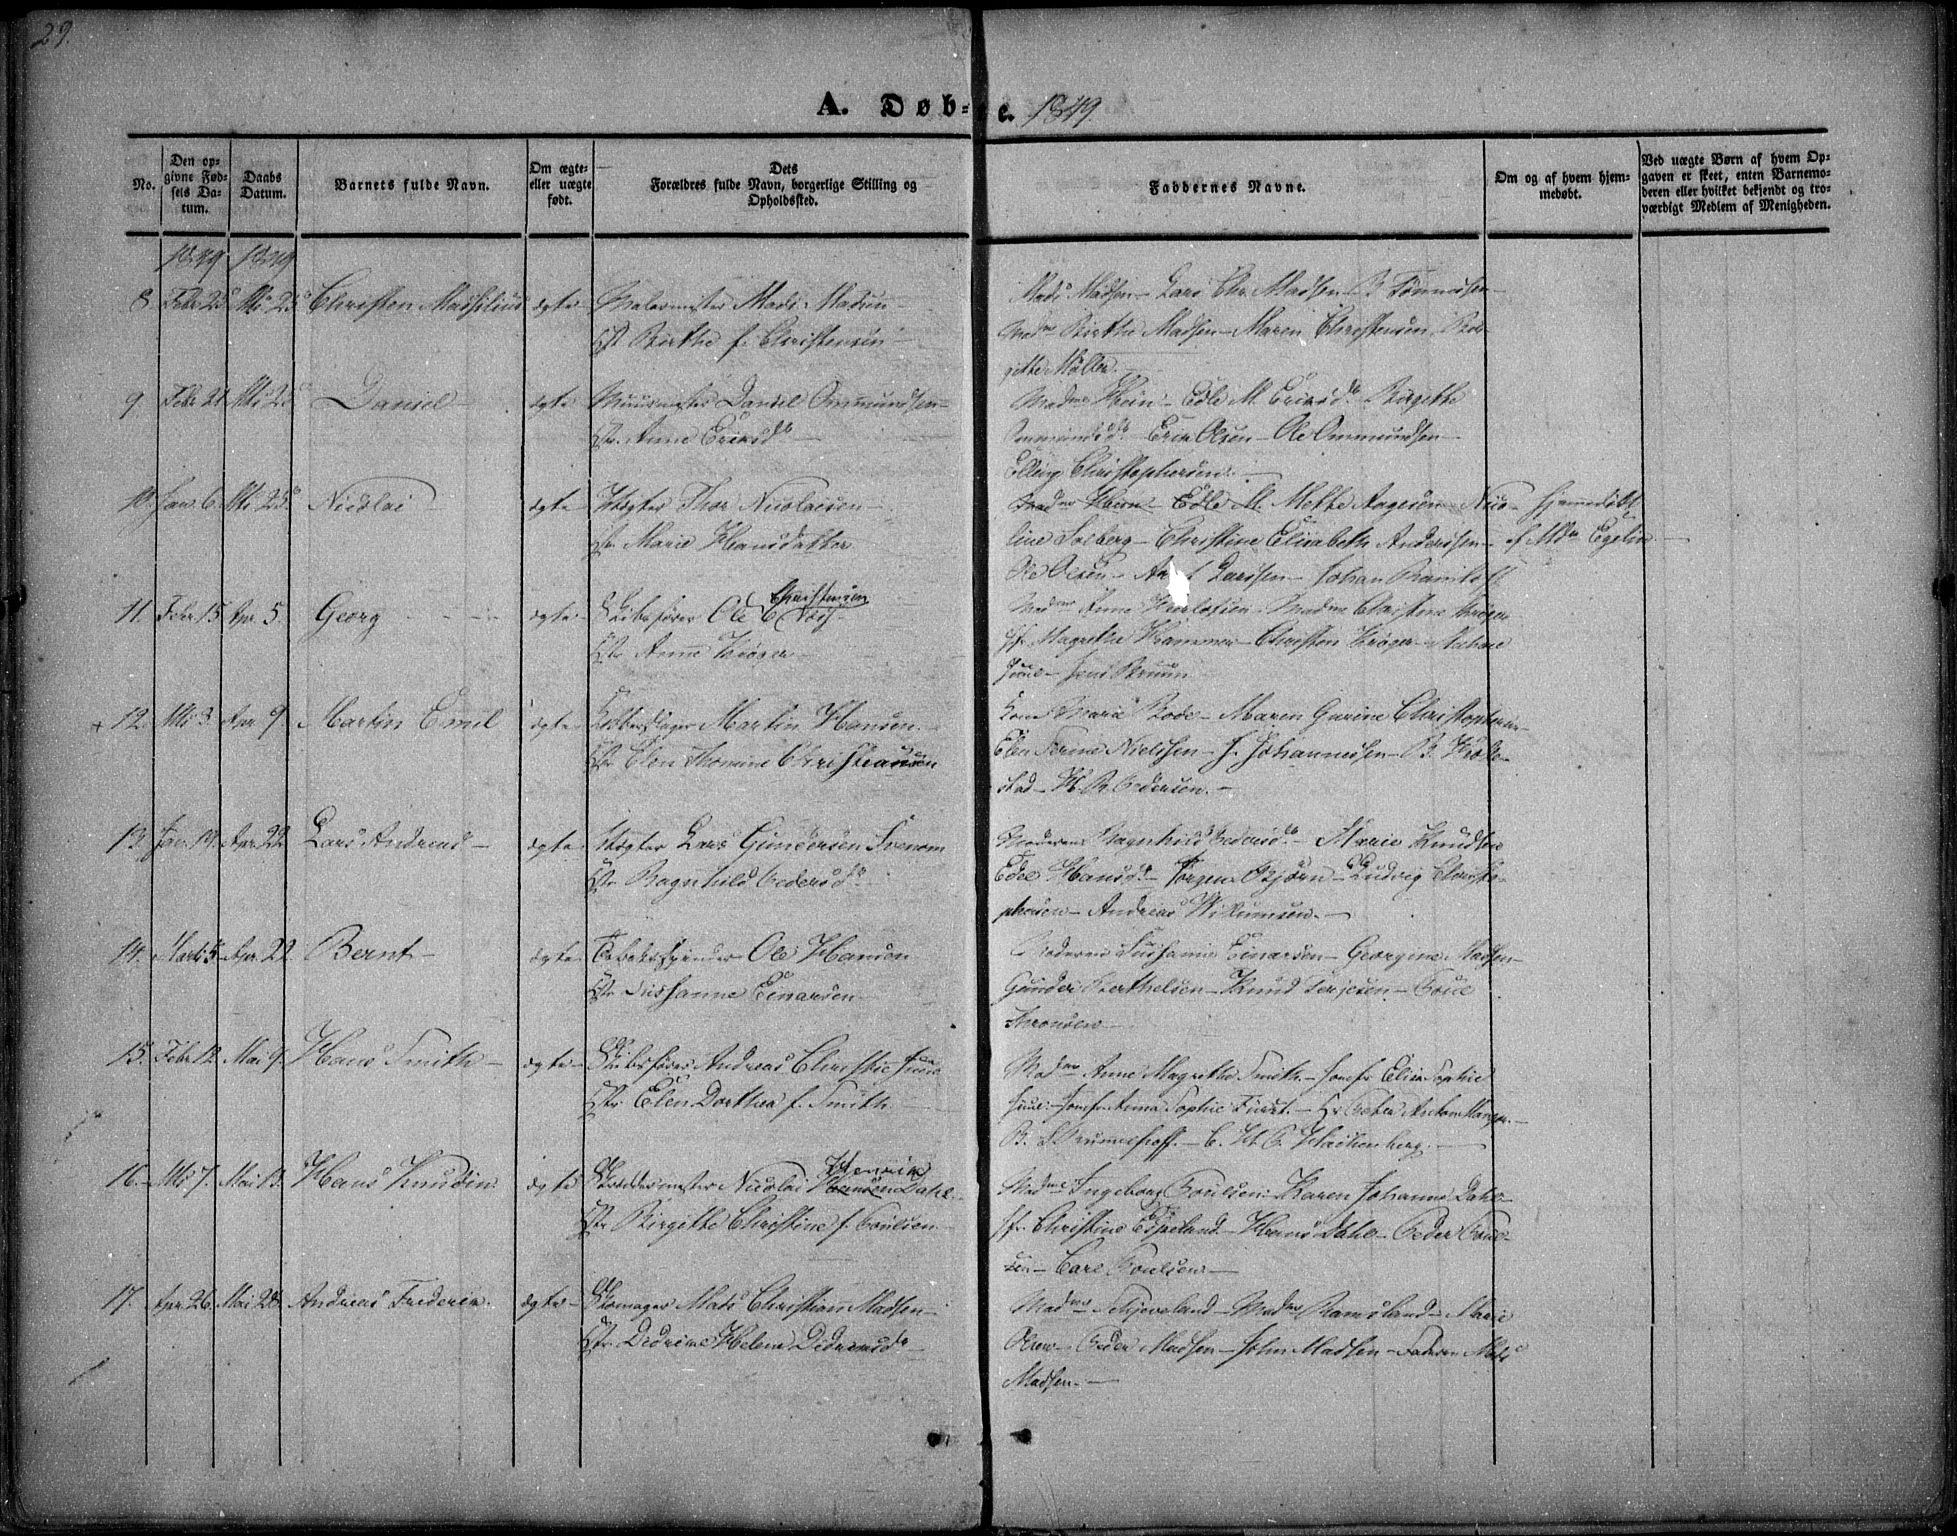 29.
A. Døb-e. 1849
No.
Den opgivne Fødsels Datum.
Daabs Datum.
Barnets fulde Navn.
Om ægte- eller uægte født.
Dets Forældres fulde Navn, borgerlige Stilling og Opholdssted.
Faddernes Navne.
Om og af hvem hjemmedøbt.
Ved uægte Børn af hvem Opgaven er skeet, enten Barnemoderen eller hvilket bekjendt og troværdigt Medlem af Menigheden.
1849 1849
8 Febr 23 Mts 25 Christen ægte Malermester Mads Madsen
Hst Birthe f. Christensen
Mads Madsen - Lars Chr. Madsen - B. Tønnesen
Madme Birthe Madsen - Maren Christensen - Bir-
gitte Møller.
9 Febr 21 Mts 25 Daniel ægte Muurmester Daniel Ommundsen
Hst. Anne Eriksdr
Madme Hein - Edle M. Eriksdr Birgithe
Ommundsdr Erik Olsen - Ole Ommundsen
Elling Christophersen.
10. Jan. 6. Mts 25. Nicolai ægte Vægter Thor Nicolaisen
Hst. Marie Hansdatter
Madme Hein - Edle M. Mette Aagesen - Nico-
line Solberg - Christine Elisabeth Anderssen -
Ole Olsen - Larssen - Johan
hjemmedøbt
af Mdm Egelin
11. Febr 15 Apr. 5. Georg ægte Skibsfører Ole C Christensen
Hst. Anne Krøger
Madme Anne - Madme Christine Krøger
Jfr. Magrethe Hammer - Christen Krøger -
Juul - Jens Bruun
12. Mts 3. Apr 9. Martin Emil ægte Kobberslager Martin Hansen.
Hst. Elen Thomine Christiansen
Kone Marie Bode - Maren Gurine Christophersen
Elen Serine Nielssen - J. Johannessen - B.
stad - H. B. Pedersen.
13. Jan 19. Apr 22 Lars Andreas ægte Vægter Lars Gundersen
Hst. Ragnhild Pedersdr
Moderen Ragnhild Pedersdr - Marie Knudsen
Edel Hansdr - Jørgen Bjørn - Ludvig Christo-
phersen - Andreas
14. Marts 5 Apr. 22 Bernt ægte Tobaksspinder Ole Hansen
Hst. Susanne Einarsen
Moderen Susanne Einarsen - Georgine Madsen
Gunder Berthelsen - Knud Terjesen - Poul
Thronsen
15. Febr 12. Mai 9. Hans Smith ægte Skibsfører Andreas Christie Juul
Hst. Elen Dorthea f. Smith
Madme Anne Magrethe Smith - Jomfr Elisa Sophie
Juul - Jomfr. Anna Sophie Fürst. - Hr Peter Anton
B. - C. W. C.
16. Mts 7. Mai 13. Hans Knudin ægte Skræddermester Nicolai Hansen Henrik Dahl
Hst. Birgithe Christine f. Poulsen
Madme Ingeborg Poulsen - Karen Johanne Dahl
Jfr. Christine Espeland - Hans Dahl - Peder Poul-
sen - Carl Poulsen
17. Apr 26. Mai 28. Andreas Frederik ægte Skomager Mads Christian Madsen
Hst. Didrikke Helene Didriksdr
Madme Schjeveland - Madme Ramsland - Marie
Olsen - Peder Madsen - John Madsen - Faderen Mads
Madsen.